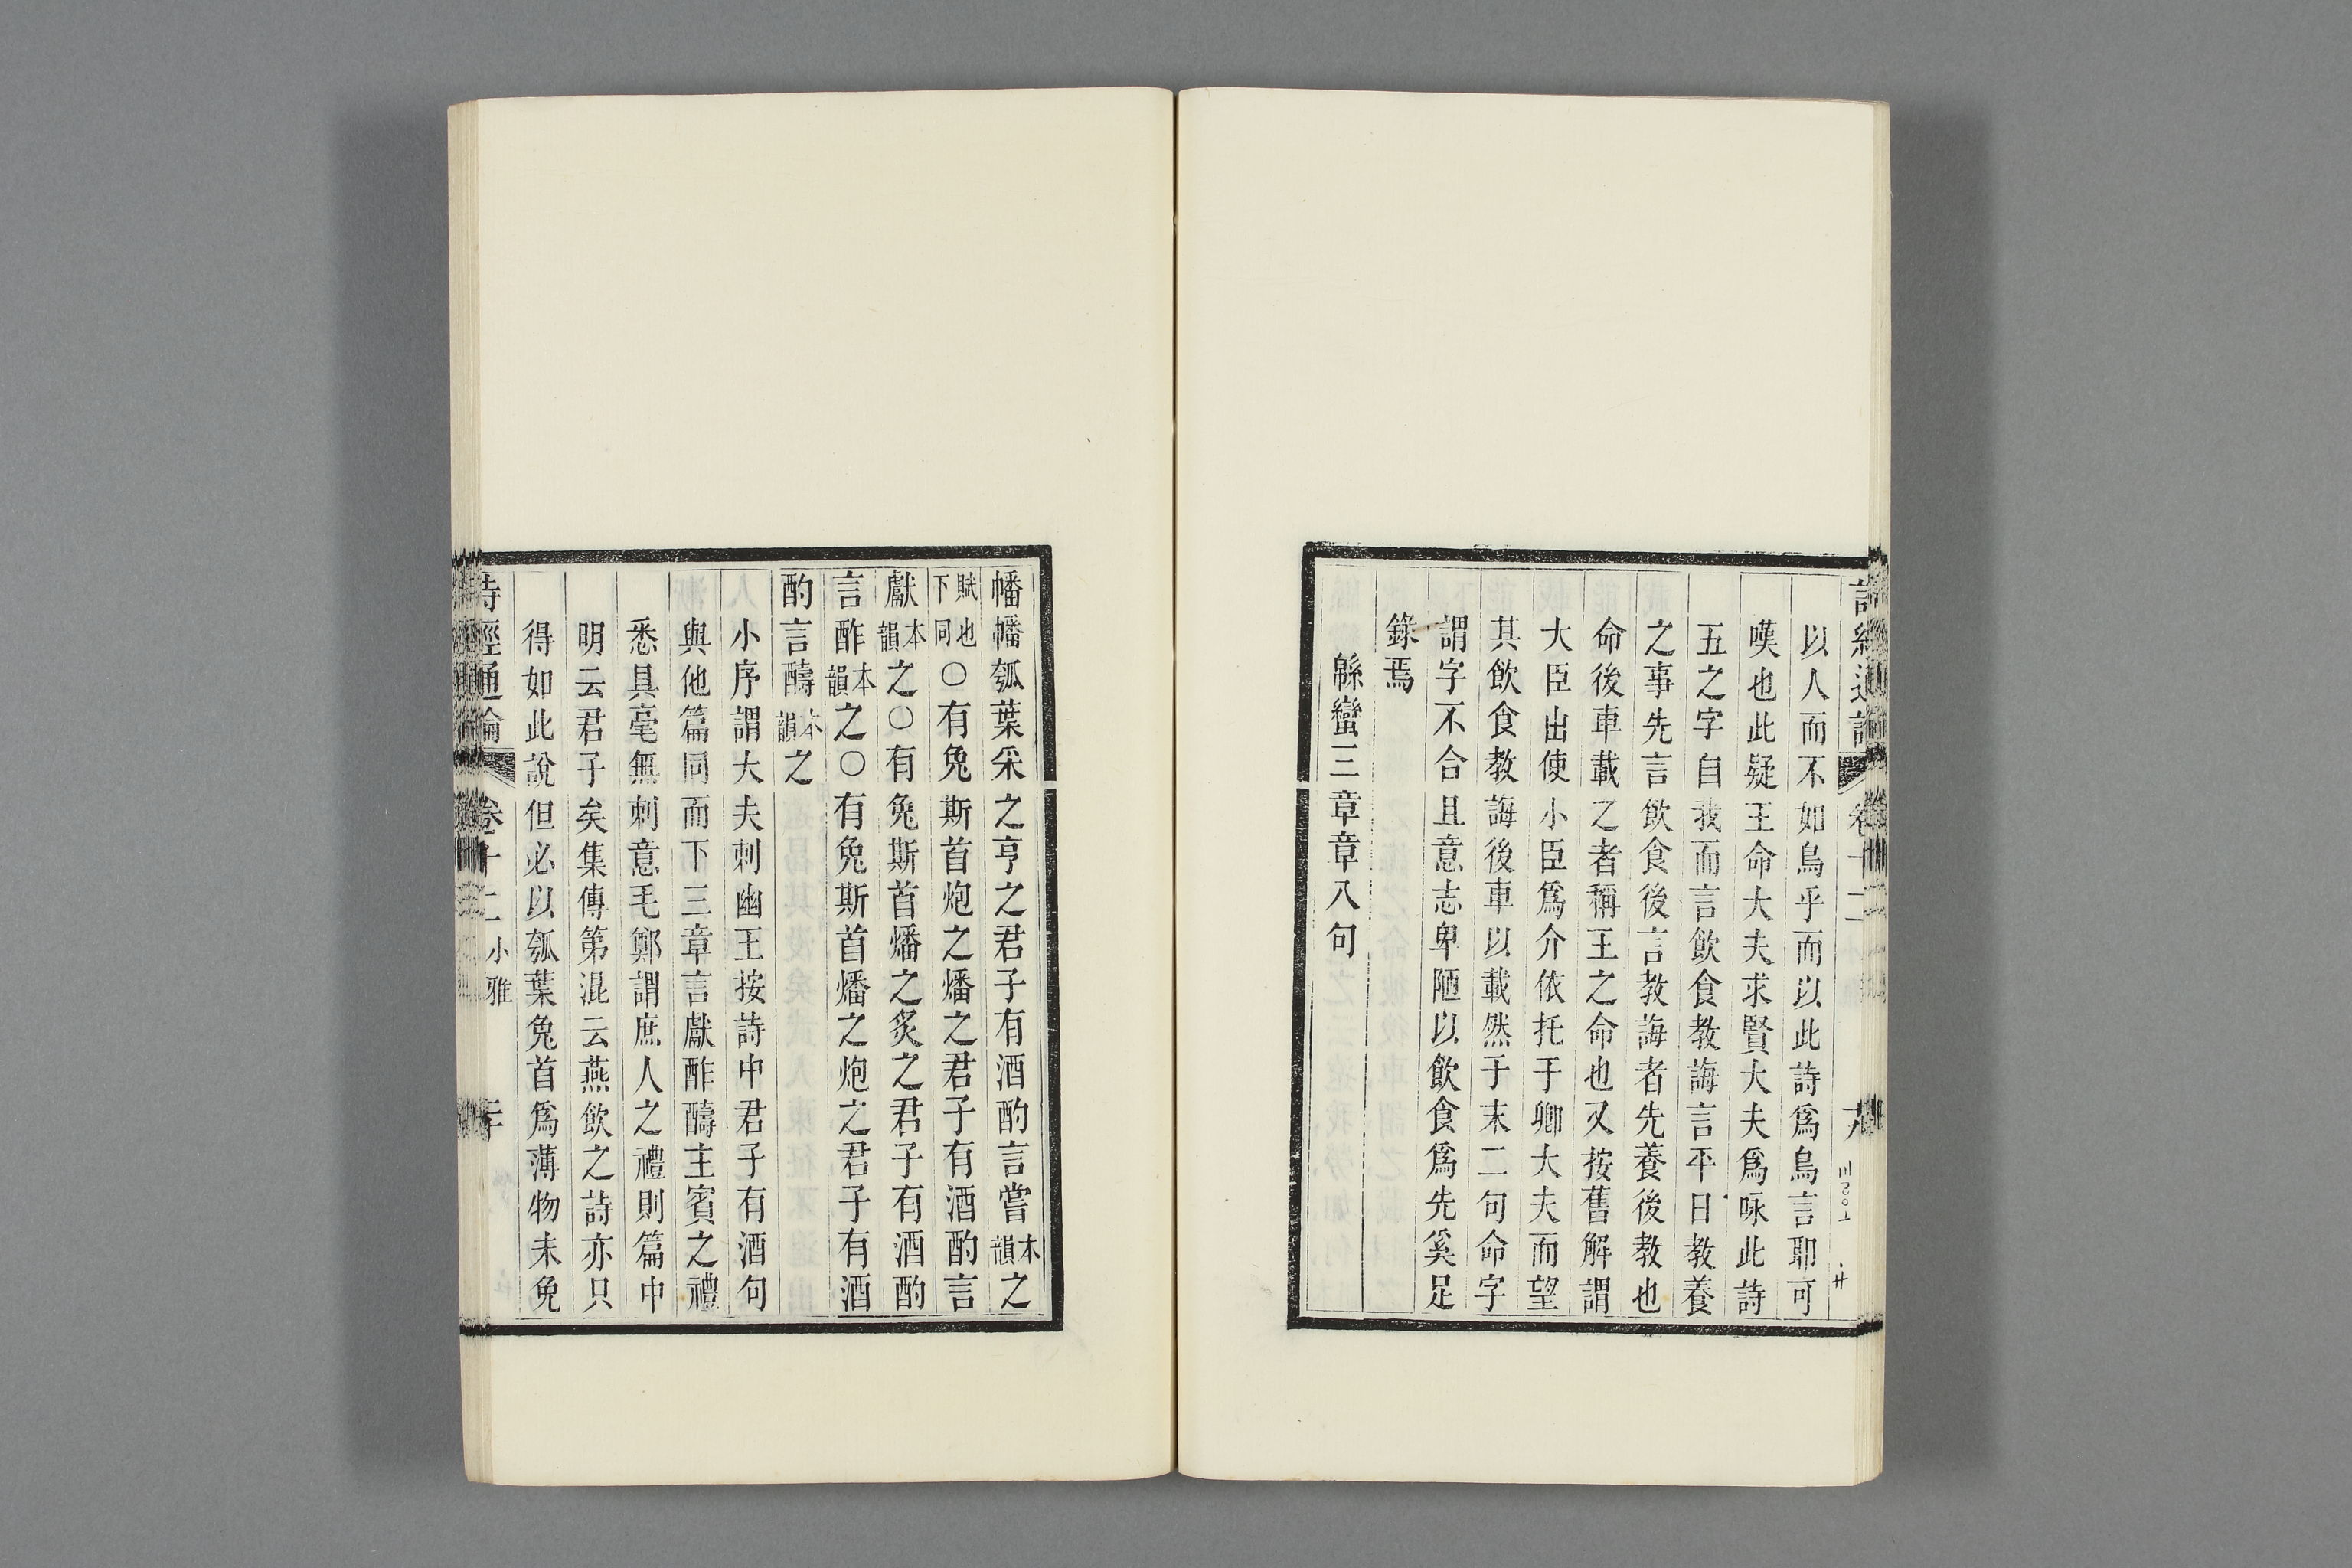 詩經通論 卷十二
以人而不如鳥乎而以此詩爲鳥言耶可
嘆也此疑王命大夫求賢大夫爲咏此詩
五之字自我而言飲食教誨言平日教養
之事先言飲食後言教誨者先養後教也
命後車載之者稱王之命也又按舊解謂
大臣出使小臣爲介依托于卿大夫而望
其飲食教誨後車以載然于末二句命字
謂字不合且意志卑陋以飲食爲先奚足
錄焉
緜蠻三章章八句
幡幡瓠葉采之亨之君子有酒酌言嘗本韻之
賦也下同○有兔斯首炮之燔之君子有酒酌言
獻本韻之○有兔斯首燔之炙之君子有酒酌
言酢本韻之○有兔斯首燔之炮之君子有酒
酌言醻本韻之
小序謂大夫刺幽王按詩中君子有酒句
與他篇同而下三章言獻酢醻主賓之禮
悉具毫無刺意毛鄭謂庶人之禮則篇中
明云君子矣集傳第混云燕飲之詩亦只
得如此說但必以瓠葉兔首爲薄物未免
詩經通論 卷十二 小雅 二十